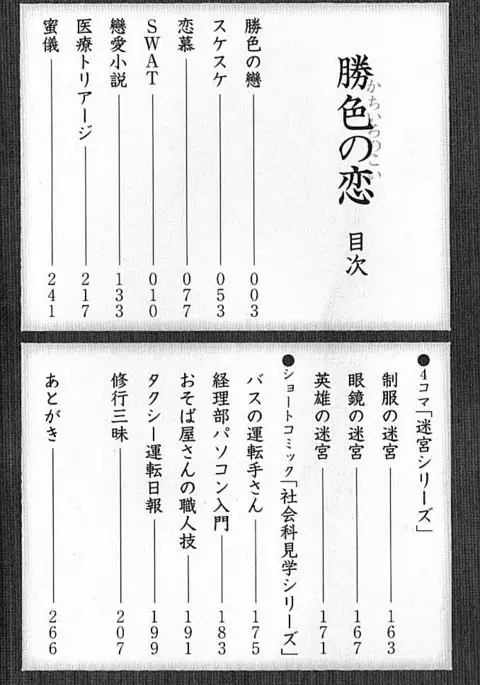 勝色の恋
かちいろのこい
目次
勝色の戀 003
スケスケ 053
恋慕 077
SWAT 010
戀愛小説 133
医療トリアージ 217
蜜儀 241
●4コマ「迷宮シリーズ」
制服の迷宮 163
眼鏡の迷宮 167
英雄の迷宮 171
●ショートコミック「社会科見学シリーズ」
バスの運転手さん 175
経理部パソコン入門 183
おそば屋さんの職人技 191
タクシー運転日報 199
修行三昧 207
あとがき 266